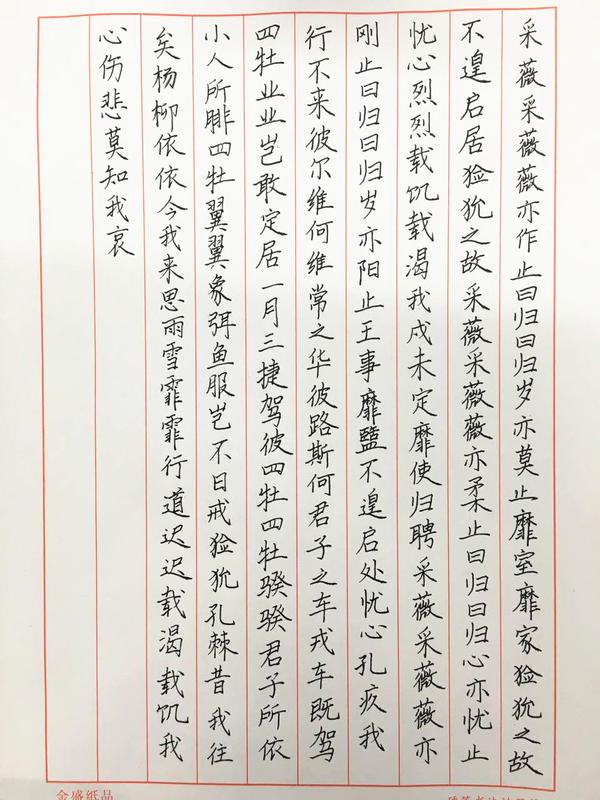 采薇采薇薇亦作止曰归曰归岁亦莫止靡室靡家猃狁之故
不遑启居猃狁之故采薇采薇薇亦柔止曰归曰归心亦忧止
忧心烈烈载饥载渴我戍未定靡使归聘采薇采薇薇亦
刚止曰归曰归岁亦阳止王事靡盬不遑启处忧心孔疚我
行不来彼尔维何维常之华彼路斯何君子之车戎车既驾
四牡业业岂敢定居一月三捷驾彼四牡四牡骙骙君子所依
小人所腓四牡翼翼象弭鱼服岂不日戒猃狁孔棘昔我往
矣杨柳依依今我来思雨雪霏霏行道迟迟载渴载饥我
心伤悲莫知我哀
金盛纸品